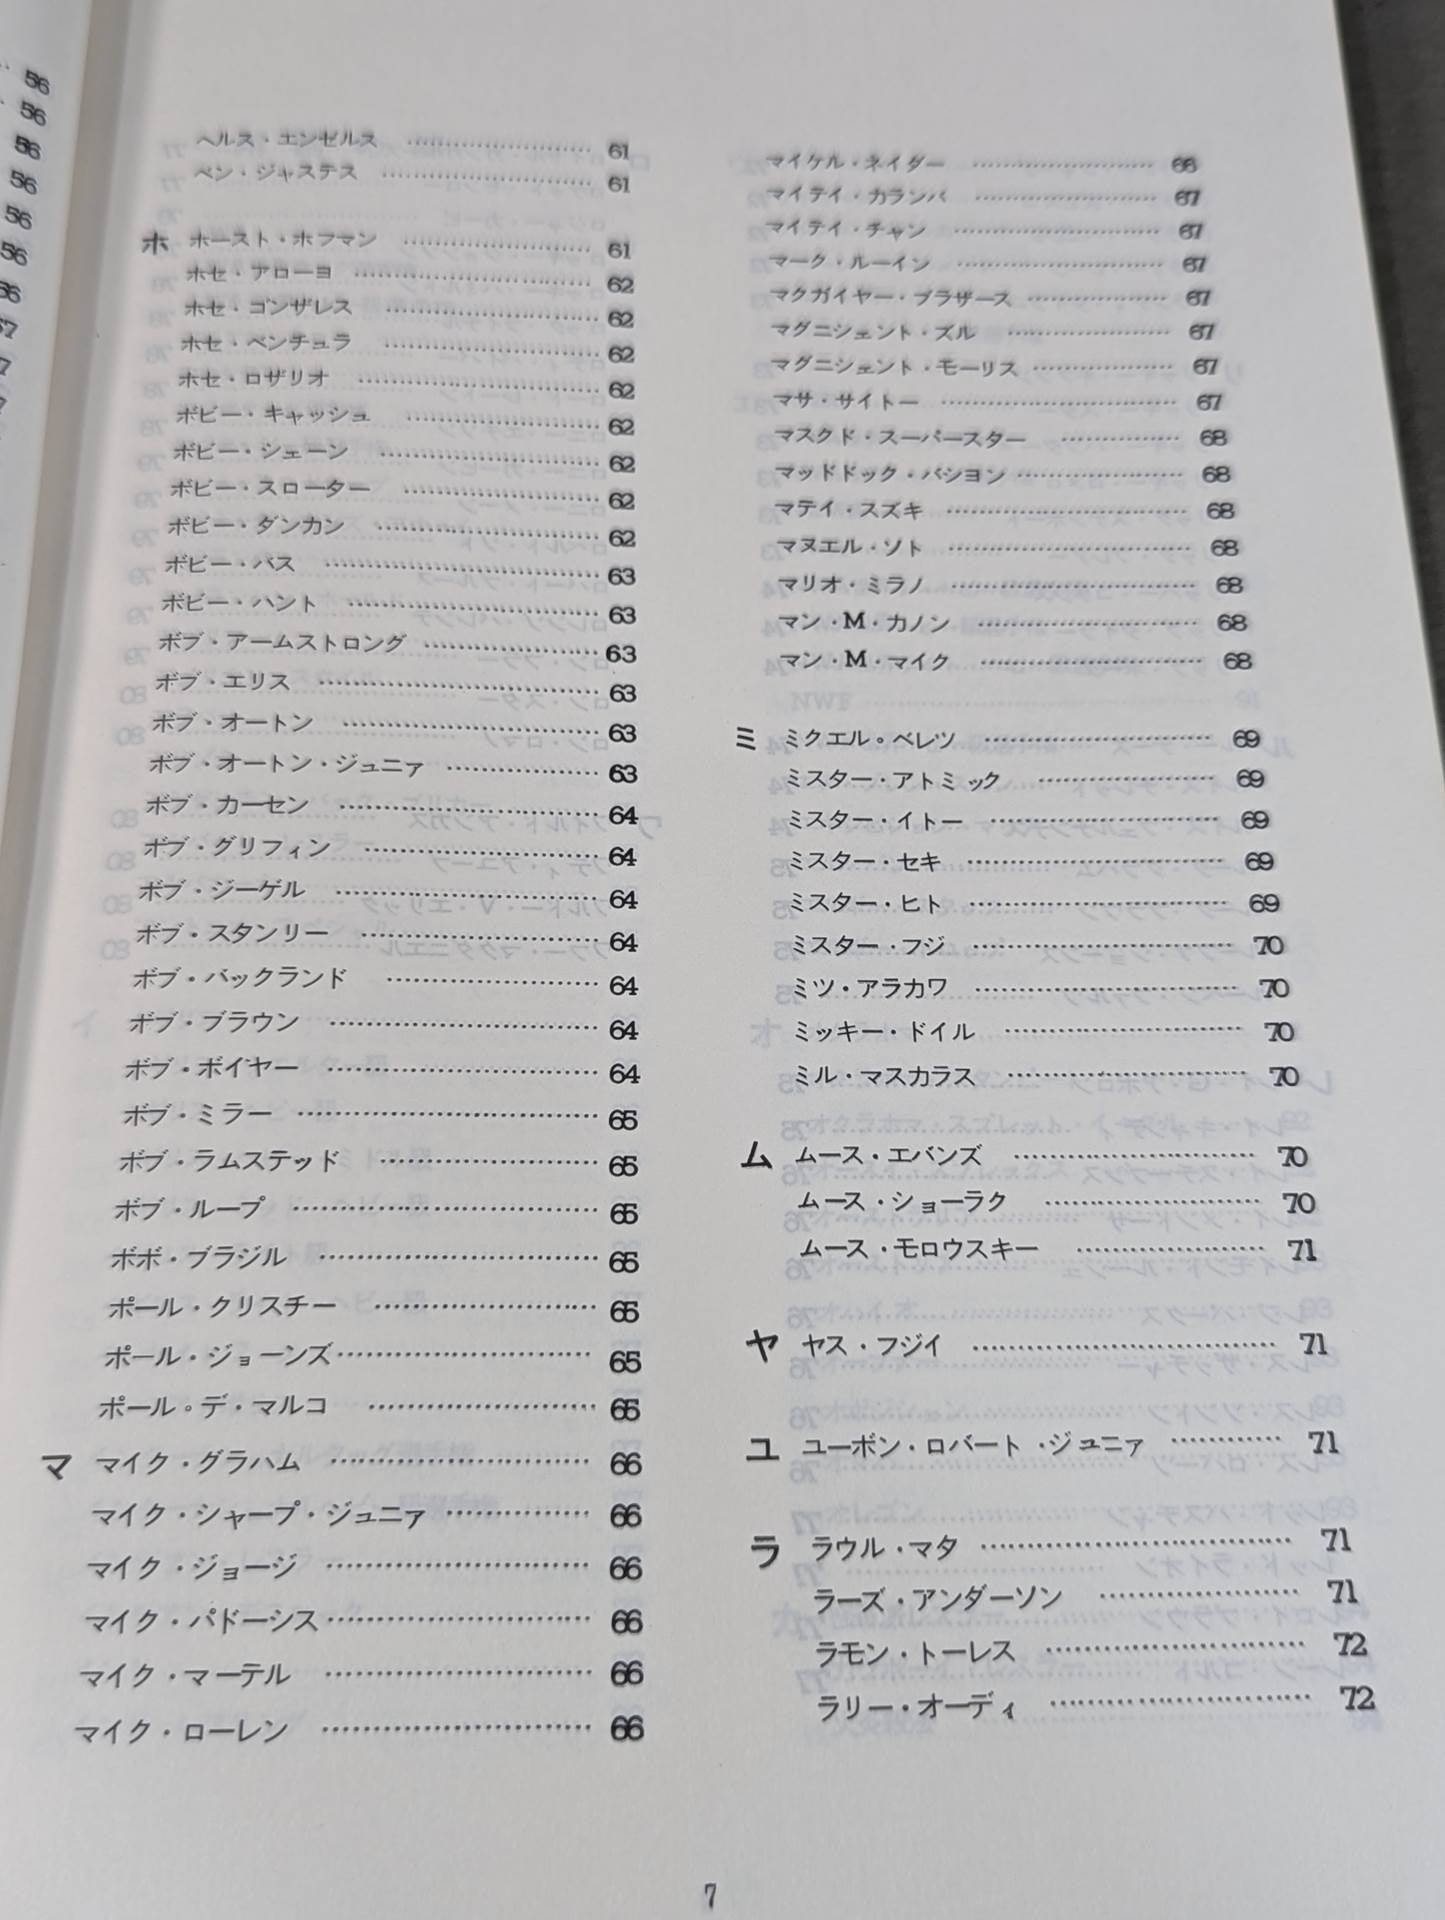 56
56
56
56
56
56
ヘルス・エンゼルス ………… 61
ベン・ジャステス ………… 61
ホ ホースト・ホフマン ………… 61
ホセ・アローヨ ………… 62
ホセ・ゴンザレス ………… 62
ホセ・ベンチュラ ………… 62
ホセ・ロザリオ ………… 62
ボビー・キャッシュ ………… 62
ボビー・シェーン ………… 62
ボビー・スローター ………… 62
ボビー・ダンカン ………… 62
ボビー・バス ………… 63
ボビー・ハント ………… 63
ボブ・アームストロング ………… 63
ボブ・エリス ………… 63
ボブ・オートン ………… 63
ボブ・オートン・ジュニア ………… 63
ボブ・カーセン ………… 64
ボブ・グリフィン ………… 64
ボブ・ジーゲル ………… 64
ボブ・スタンリー ………… 64
ボブ・バックランド ………… 64
ボブ・ブラウン ………… 64
ボブ・ボイヤー ………… 64
ボブ・ミラー ………… 65
ボブ・ラムステッド ………… 65
ボブ・ループ ………… 65
ボボ・ブラジル ………… 65
ポール・クリスチー ………… 65
ポール・ジョーンズ ………… 65
ポール・デ・マルコ ………… 65
マ マイク・グラハム ………… 66
マイク・シャープ・ジュニア ………… 66
マイク・ジョージ ………… 66
マイク・パドーシス ………… 66
マイク・マーテル ………… 66
マイク・ローレン ………… 66
マイケル・ネイダー ………… 66
マイテイ・カランバ ………… 67
マイテイ・チャン ………… 67
マーク・ルーイン ………… 67
マクガイヤー・ブラザース ………… 67
マグニシェント・ズル ………… 67
マグニシェント・モーリス ………… 67
マサ・サイトー ………… 67
マスクド・スーパースター ………… 68
マッドドック・バション ………… 68
マテイ・スズキ ………… 68
マヌエル・ソト ………… 68
マリオ・ミラノ ………… 68
マン・M・カノン ………… 68
マン・M・マイク ………… 68
ミ ミクエル・ペレツ ………… 69
ミスター・アトミック ………… 69
ミスター・イトー ………… 69
ミスター・セキ ………… 69
ミスター・ヒト ………… 69
ミスター・フジ ………… 70
ミツ・アラカワ ………… 70
ミッキー・ドイル ………… 70
ミル・マスカラス ………… 70
ム ムース・エバンズ ………… 70
ムース・ショーラク ………… 70
ムース・モロウスキー ………… 71
ヤ ヤス・フジイ ………… 71
ユ ユーボン・ロバート・ジュニア ………… 71
ラ ラウル・マタ ………… 71
ラーズ・アンダーソン ………… 71
ラモン・トーレス ………… 72
ラリー・オーディ ………… 72
7